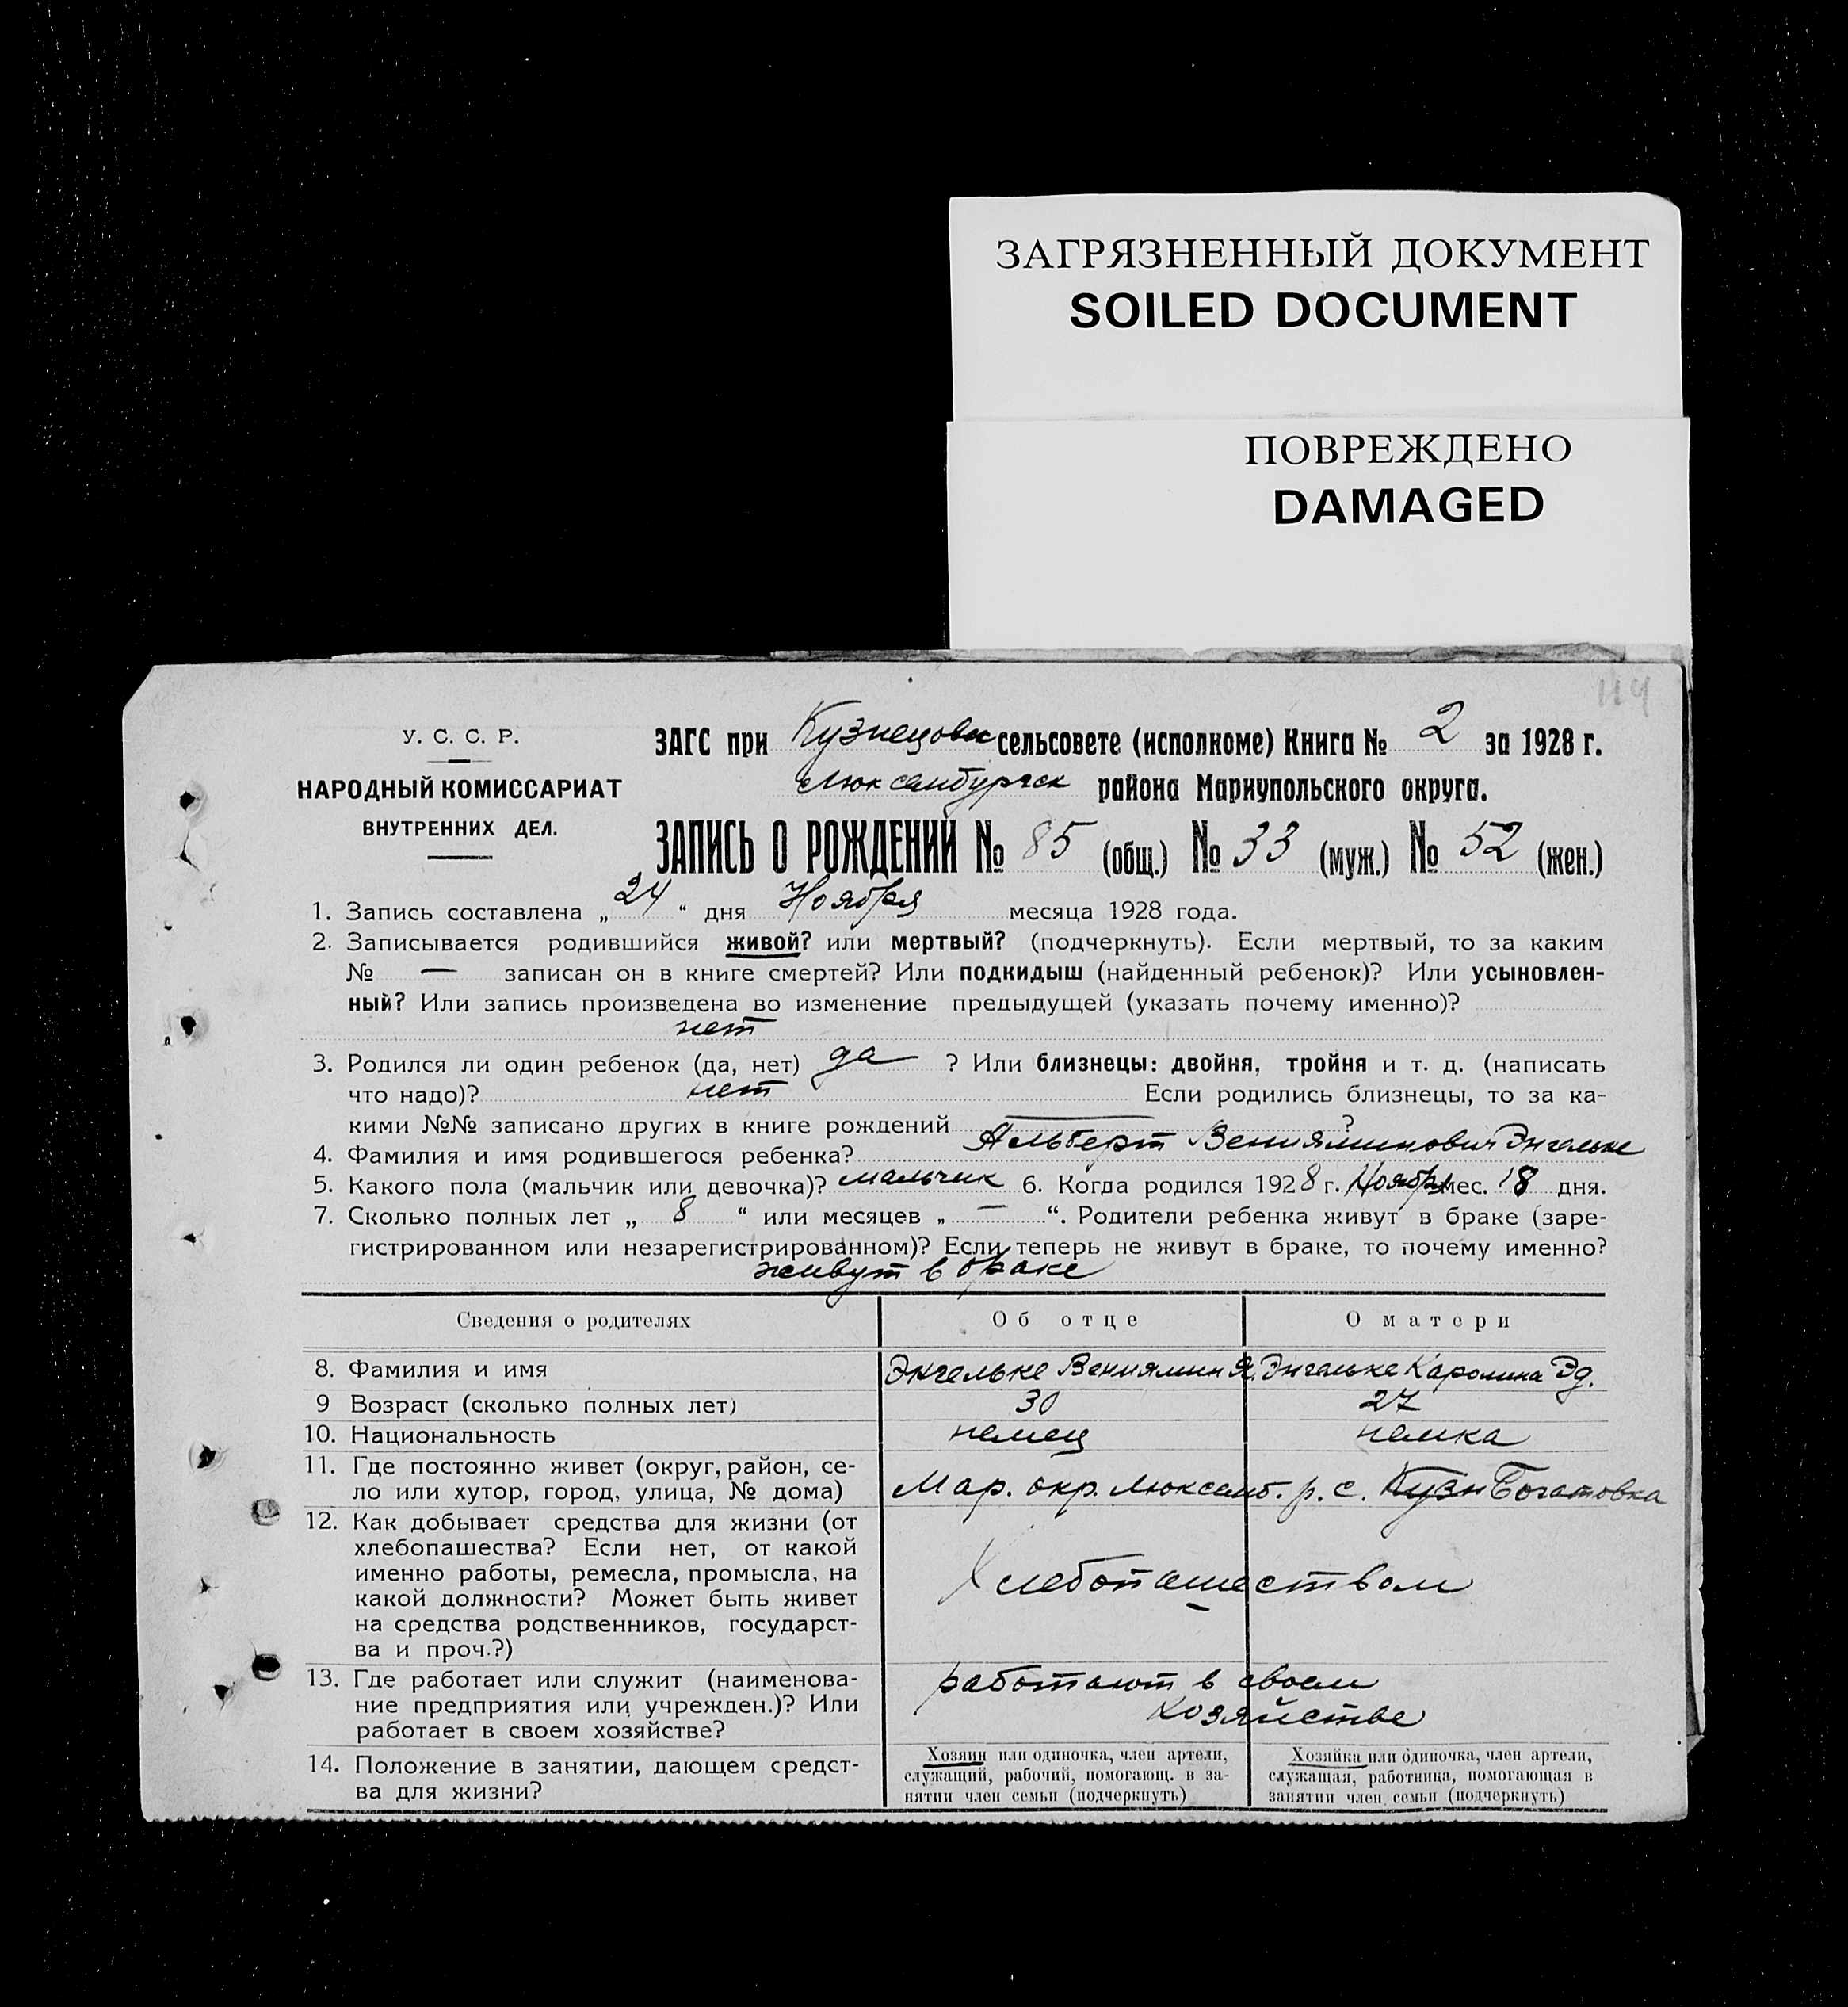 ЗАГРЯЗНЕННЫЙ ДОКУМЕНТ
SOILED DOCUMENT
ПОВРЕЖДЕНО
DAMAGED
У. С. С. Р.
НАРОДНЫЙ КОМИССАРИАТ
ВНУТРЕННИХ ДЕЛ.
ЗАГС при Кузнецовск сельсовете (исполкоме) Книга № 2 за 1928 г.
Люксембургск района Мариупольского округа.
ЗАПИСЬ О РОЖДЕНИИ № 85 (общ.) № 33 (муж.) № 52 (жен.)
1. Запись составлена „ 24 “ дня Ноября месяца 1928 года.
2. Записывается родившийся живой? или мертвый? (подчеркнуть). Если мертвый, то за каким
№ — записан он в книге смертей? Или подкидыш (найденный ребенок)? Или усыновлен-
ный? Или запись произведена во изменение предыдущей (указать почему именно)?
нет
3. Родился ли один ребенок (да, нет) да ? Или близнецы: двойня, тройня и т. д. (написать
что надо)? нет Если родились близнецы, то за ка-
кими №№ записано других в книге рождений — ?
4. Фамилия и имя родившегося ребенка? Альберт Вениаминович Энгельке
5. Какого пола (мальчик или девочка)? мальчик 6. Когда родился 1928 г. Ноября мес. 18 дня.
7. Сколько полных лет „ 8 “ или месяцев „ — “. Родители ребенка живут в браке (заре-
гистрированном или незарегистрированном)? Если теперь не живут в браке, то почему именно?
живут в браке
Сведения о родителях Об отце О матери
8. Фамилия и имя Энгельке Вениямин Я. Энгельке Каролина Эд.
9 Возраст (сколько полных лет) 30 27
10. Национальность немец немка
11. Где постоянно живет (округ, район, се-
ло или хутор, город, улица, № дома) Мар. окр. Люксемб. р. с. Кузн Богатовка
12. Как добывает средства для жизни (от
хлебопашества? Если нет, от какой
именно работы, ремесла, промысла, на
какой должности? Может быть живет
на средства родственников, государст-
ва и проч.?)
Хлебопашеством
13. Где работает или служит (наименова-
ние предприятия или учрежден.)? Или
работает в своем хозяйстве?
работают в своем
хозяйстве
14. Положение в занятии, дающем средст-
ва для жизни?
Хозяин или одиночка, член артели,
служащий, рабочий, помогающ. в за-
нятии член семьи (подчеркнуть)
Хозяйка или одиночка, член артели,
служащая, работница, помогающая в
занятии член семьи (подчеркнуть)